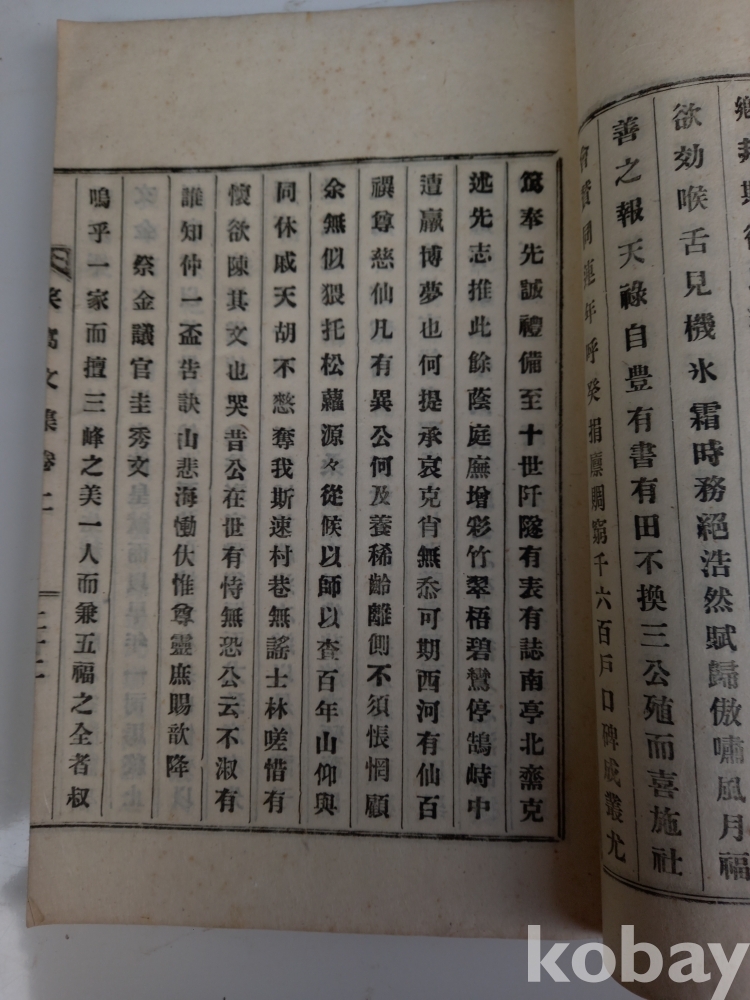 欲効喉舌見機氷霜時務絕浩然賦歸傲嘯風月福
善之報天祿自豊有書有田不換三公殖而喜施社
年呼癸捐廩賙窮千六百戶口碑成叢尤
篤奉先誠禮備至十世阡隧有表有誌南亭北齋克
述先志推此餘蔭庭廡增彩竹翠梧碧鸞停鵠峙中
遭嬴博夢也何提承哀克肖無忝可期西河有仙百
禩尊慈仙凡有異公何及養稀齡離側不須悵惘顧
余無似猥托松蘿源々從候以師以査百年山仰與
同休戚天胡不憗奪我斯速村巷無謠士林嗟惜有
懷欲陳其文也哭昔公在世有恃無恐公云不淑有
誰知仲一盃告訣山悲海慟伏惟尊靈庶賜歆降
祭金議官圭秀文
嗚乎一家而擅三峰之美一人而兼五福之全者叔
文集卷二
二十二
kobay